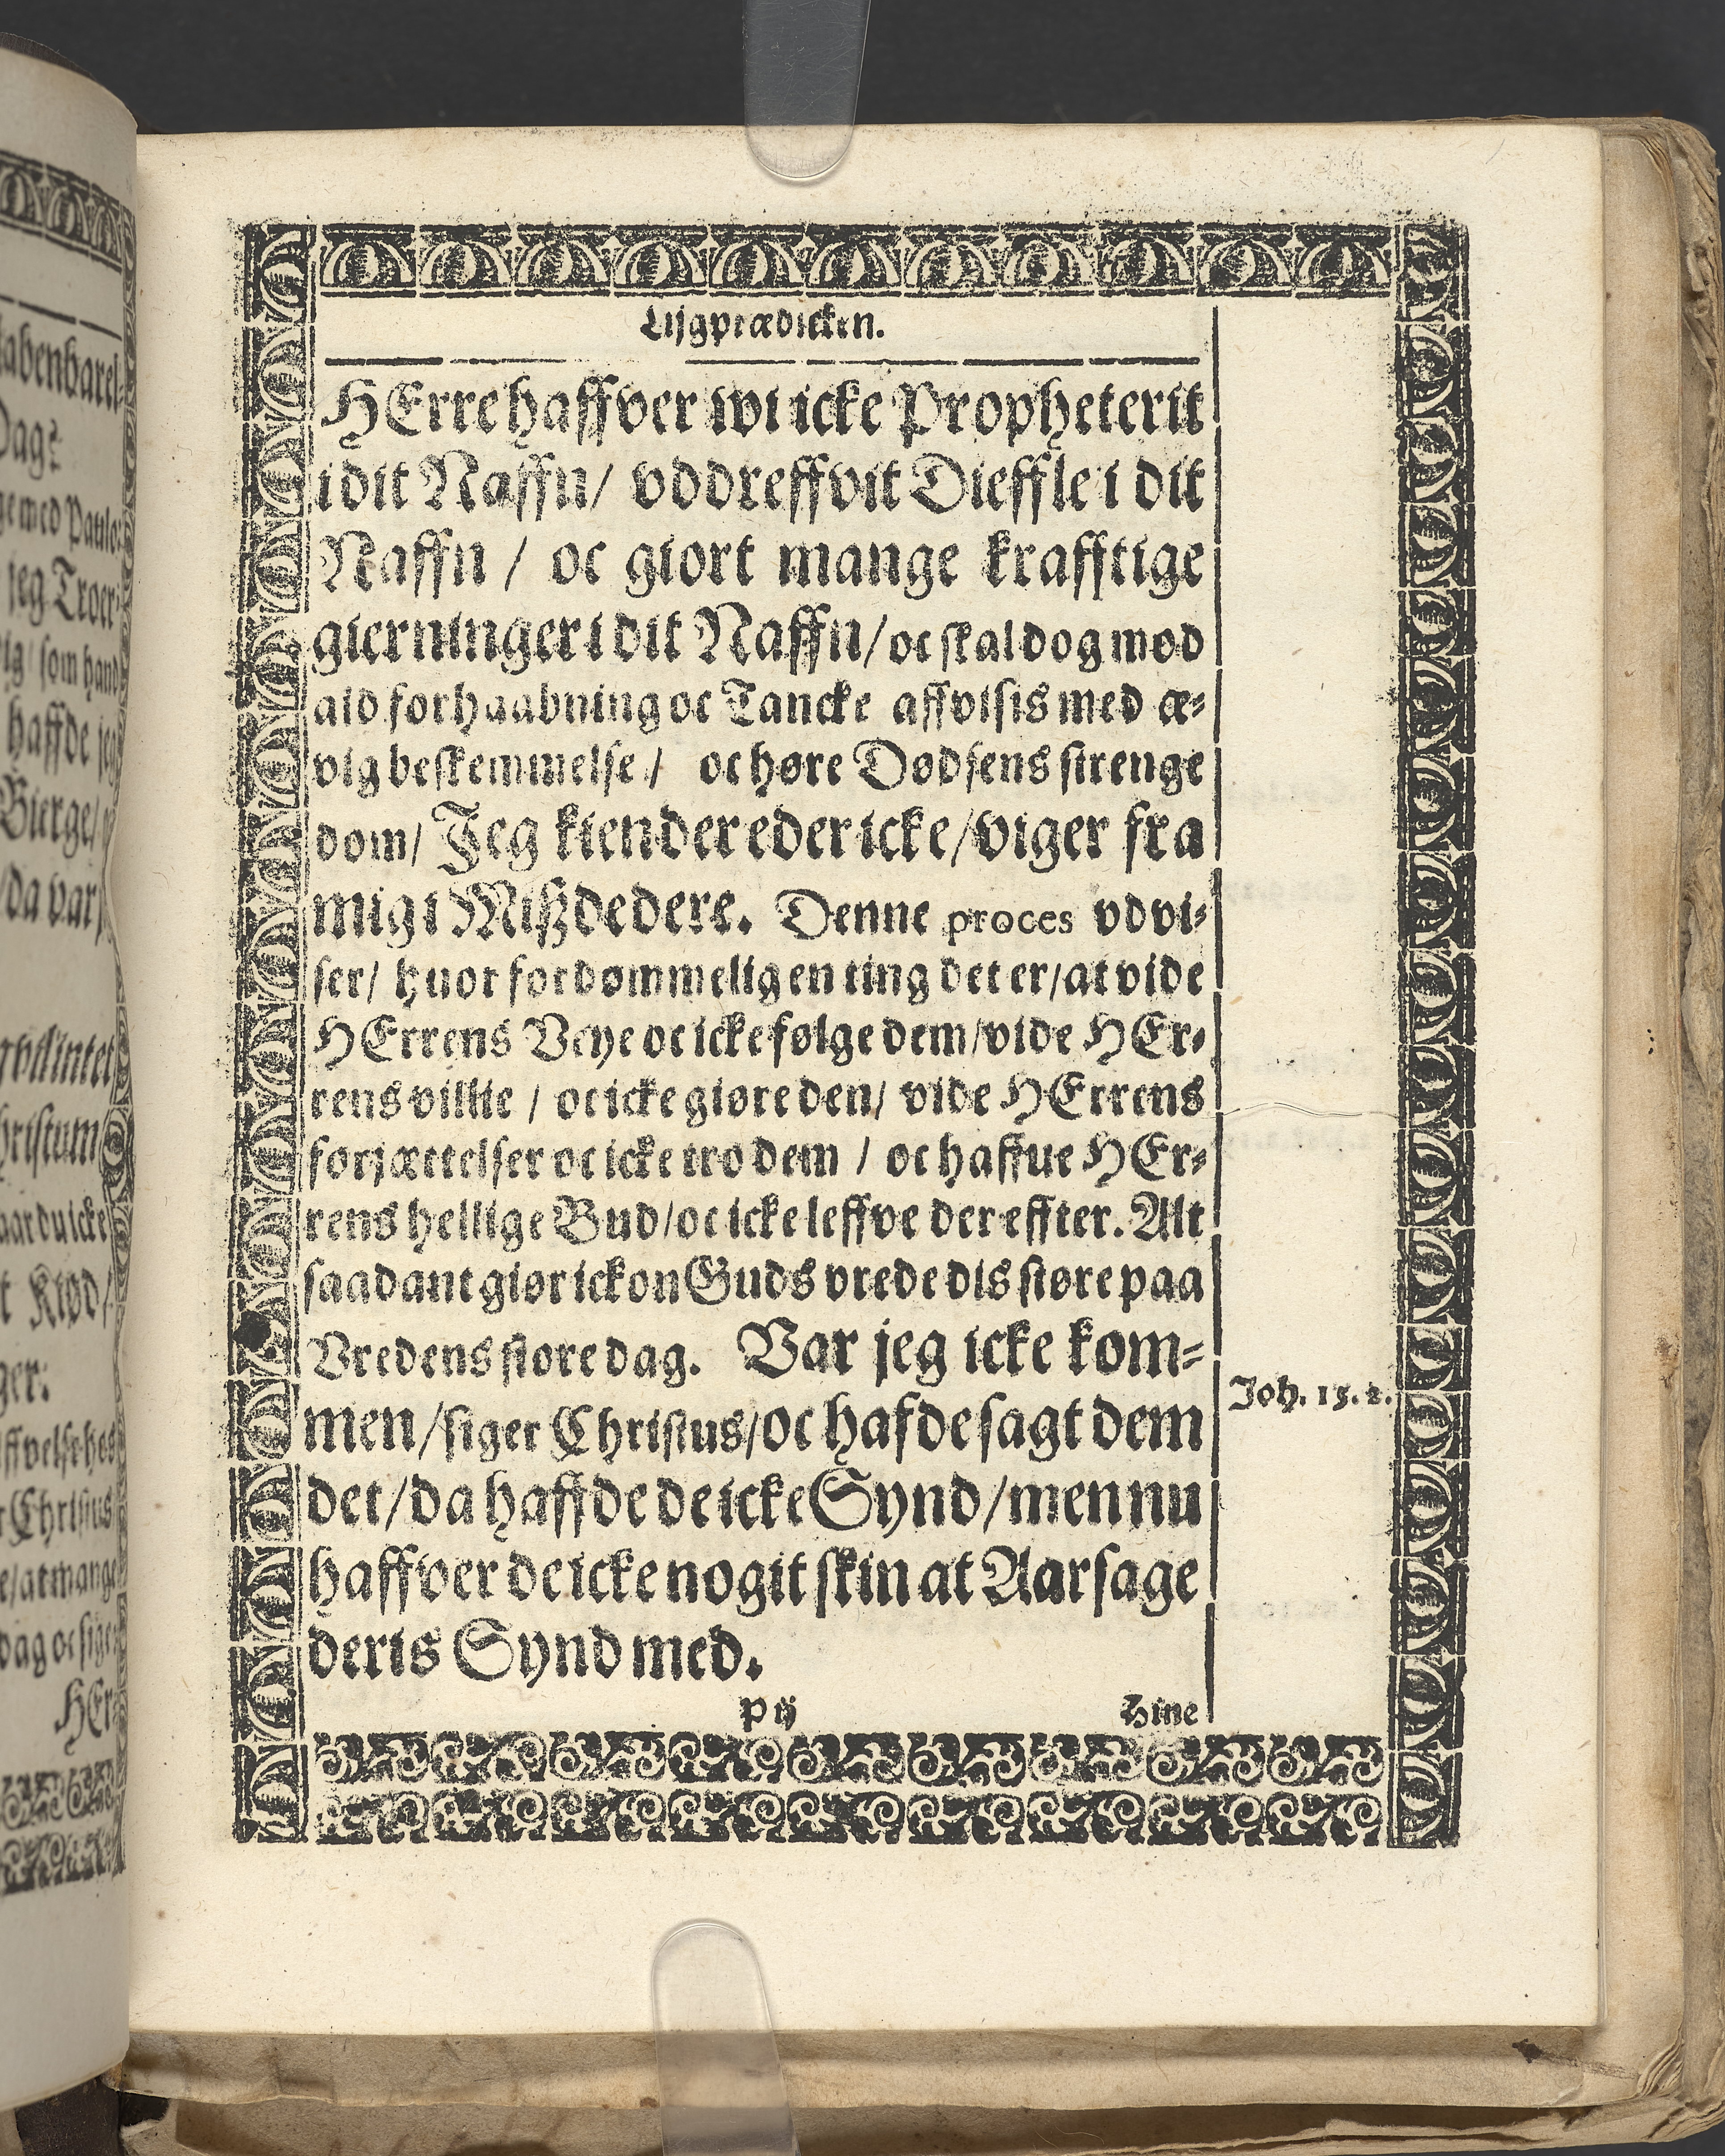 Lijgprædicken.
HErre haffver wi icke Propheterit
i dit Naffn/ vddreffvit Dieffle i dit
Naffn / oc giort mange krafftige
gierninger i dit Naffn/ oc skal dog mod
ald forhaabning oc Tancke affvisis med æ-
vig beskemmelse / oc høre Dødsens strenge
dom/ Jeg kiender eder icke/ viger fra
mig i Mißdedere. Denne proces vdvi-
ser/ huor fordømmelig en ting det er/ at vide
HErrens Veye oc icke følge dem/ vide HEr-
rens villie / oc icke giøre den/ vide HErrens
forjættelser oc icke tro dem / oc haffue HEr-
rens hellige Bud/ oc icke leffve der effter. Alt
saadant giør ickon Guds vrede dis støre paa
Vredens store dag. Var jeg icke kom-
men/ siger Christus/ oc hafde sagt dem
det/ da haffde de icke Synd/ men nu
haffver de icke nogit skin at Aarsage
deris Synd med.
Joh. 15. 2.
P ij Hine
abenbarel-
Dag?
med Paulo:
jeg Troer
som hand
haffde jeg
Bierge/
/da var
hristum
aar du icke
t Kiød/
ger:
Christus
e/at mange
dag oc siger
HEr-